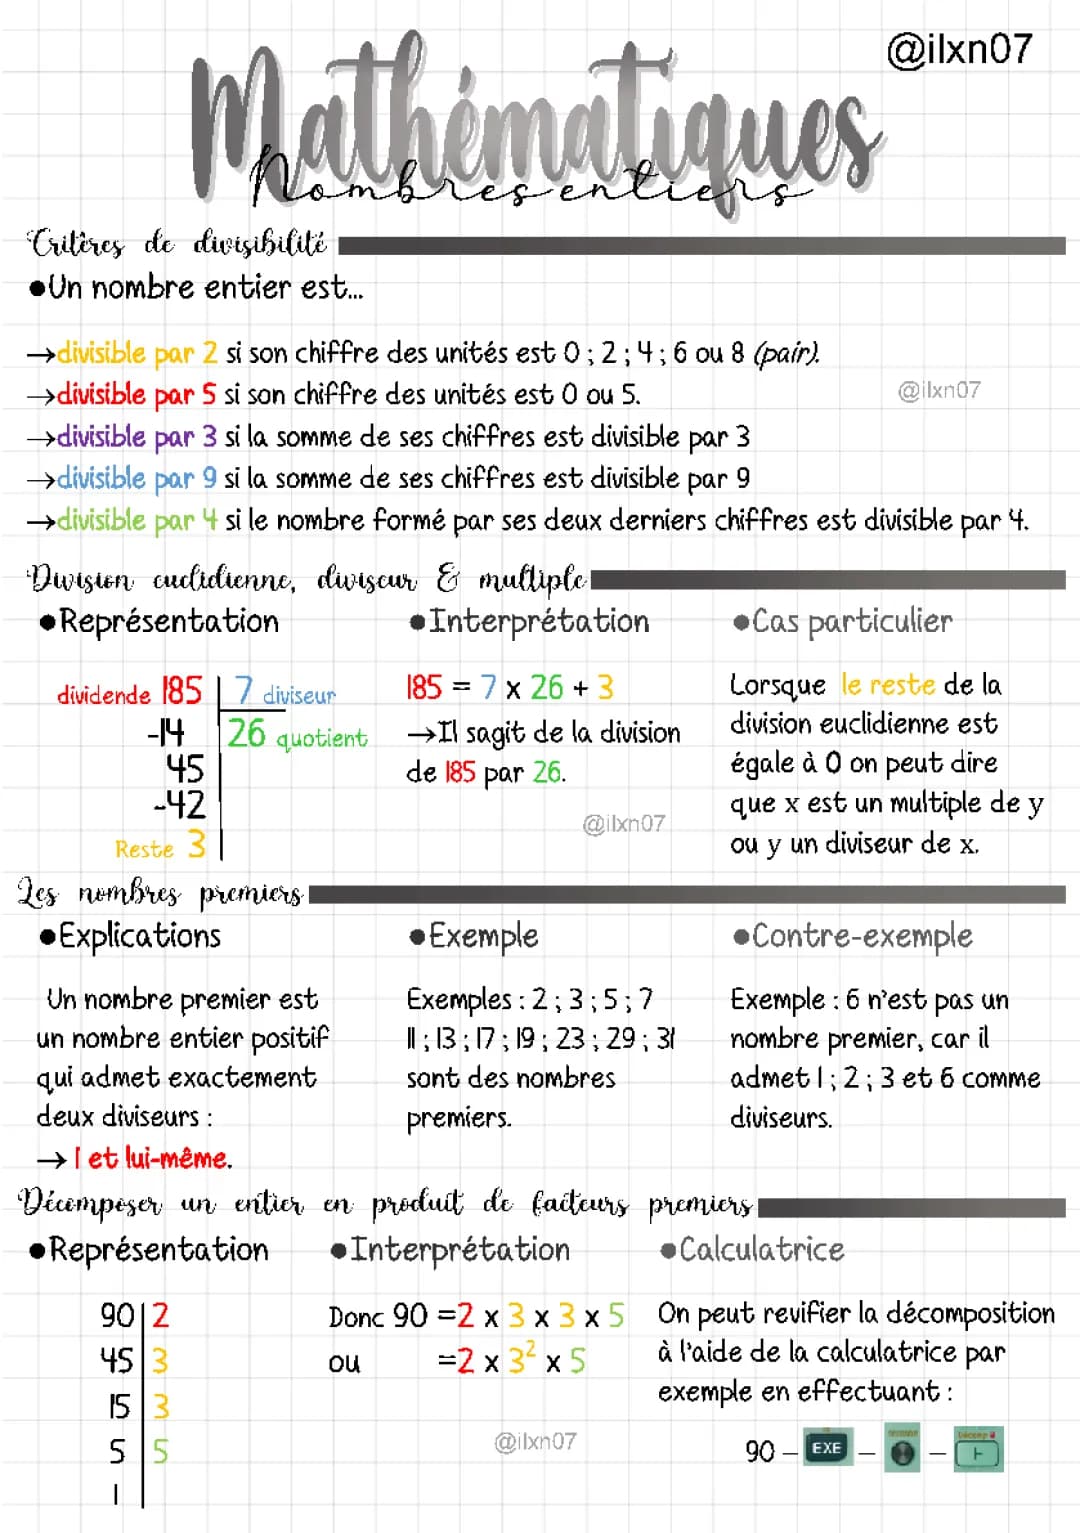 @ilxn07
Mathématiques
Nombres entiers
Critères de divisibilité
●Un nombre entier est...
→divisible par 2 si son chiffre des unités est 0 ; 2 ; 4 ; 6 ou 8 (pair).
→divisible par 5 si son chiffre des unités est 0 ou 5.
@ilxn07
→divisible par 3 si la somme de ses chiffres est divisible par 3
→divisible par 9 si la somme de ses chiffres est divisible par 9
→divisible par 4 si le nombre formé par ses deux derniers chiffres est divisible par 4.
Division euclidienne, diviseur & multiple
●Représentation
dividende 185 | 7 diviseur
-14 26 quotient
45
-42
Reste 3
●Interprétation
185 = 7 x 26 + 3
→Il sagit de la division
de 185 par 26.
@ilxn07
●Cas particulier
Lorsque le reste de la
division euclidienne est
égale à 0 on peut dire
que x est un multiple de y
ou y un diviseur de x.
Les nombres premiers
●Explications
Un nombre premier est
un nombre entier positif
qui admet exactement
deux diviseurs :
→ 1 et lui-même.
●Exemple
Exemples : 2 ; 3 ; 5 ; 7
11 ; 13 ; 17 ; 19 ; 23 ; 29 ; 31
sont des nombres
premiers.
●Contre-exemple
Exemple : 6 n'est pas un
nombre premier, car il
admet 1 ; 2 ; 3 et 6 comme
diviseurs.
Décomposer un entier en produit de facteurs premiers
●Représentation
90 | 2
45 | 3
15 | 3
5 | 5
1
●Interprétation
Donc 90 =2 x 3 x 3 x 5
ou =2 x 3² x 5
@ilxn07
●Calculatrice
On peut revifier la décomposition
à l'aide de la calculatrice par
exemple en effectuant :
90 – EXE – –
Décomp